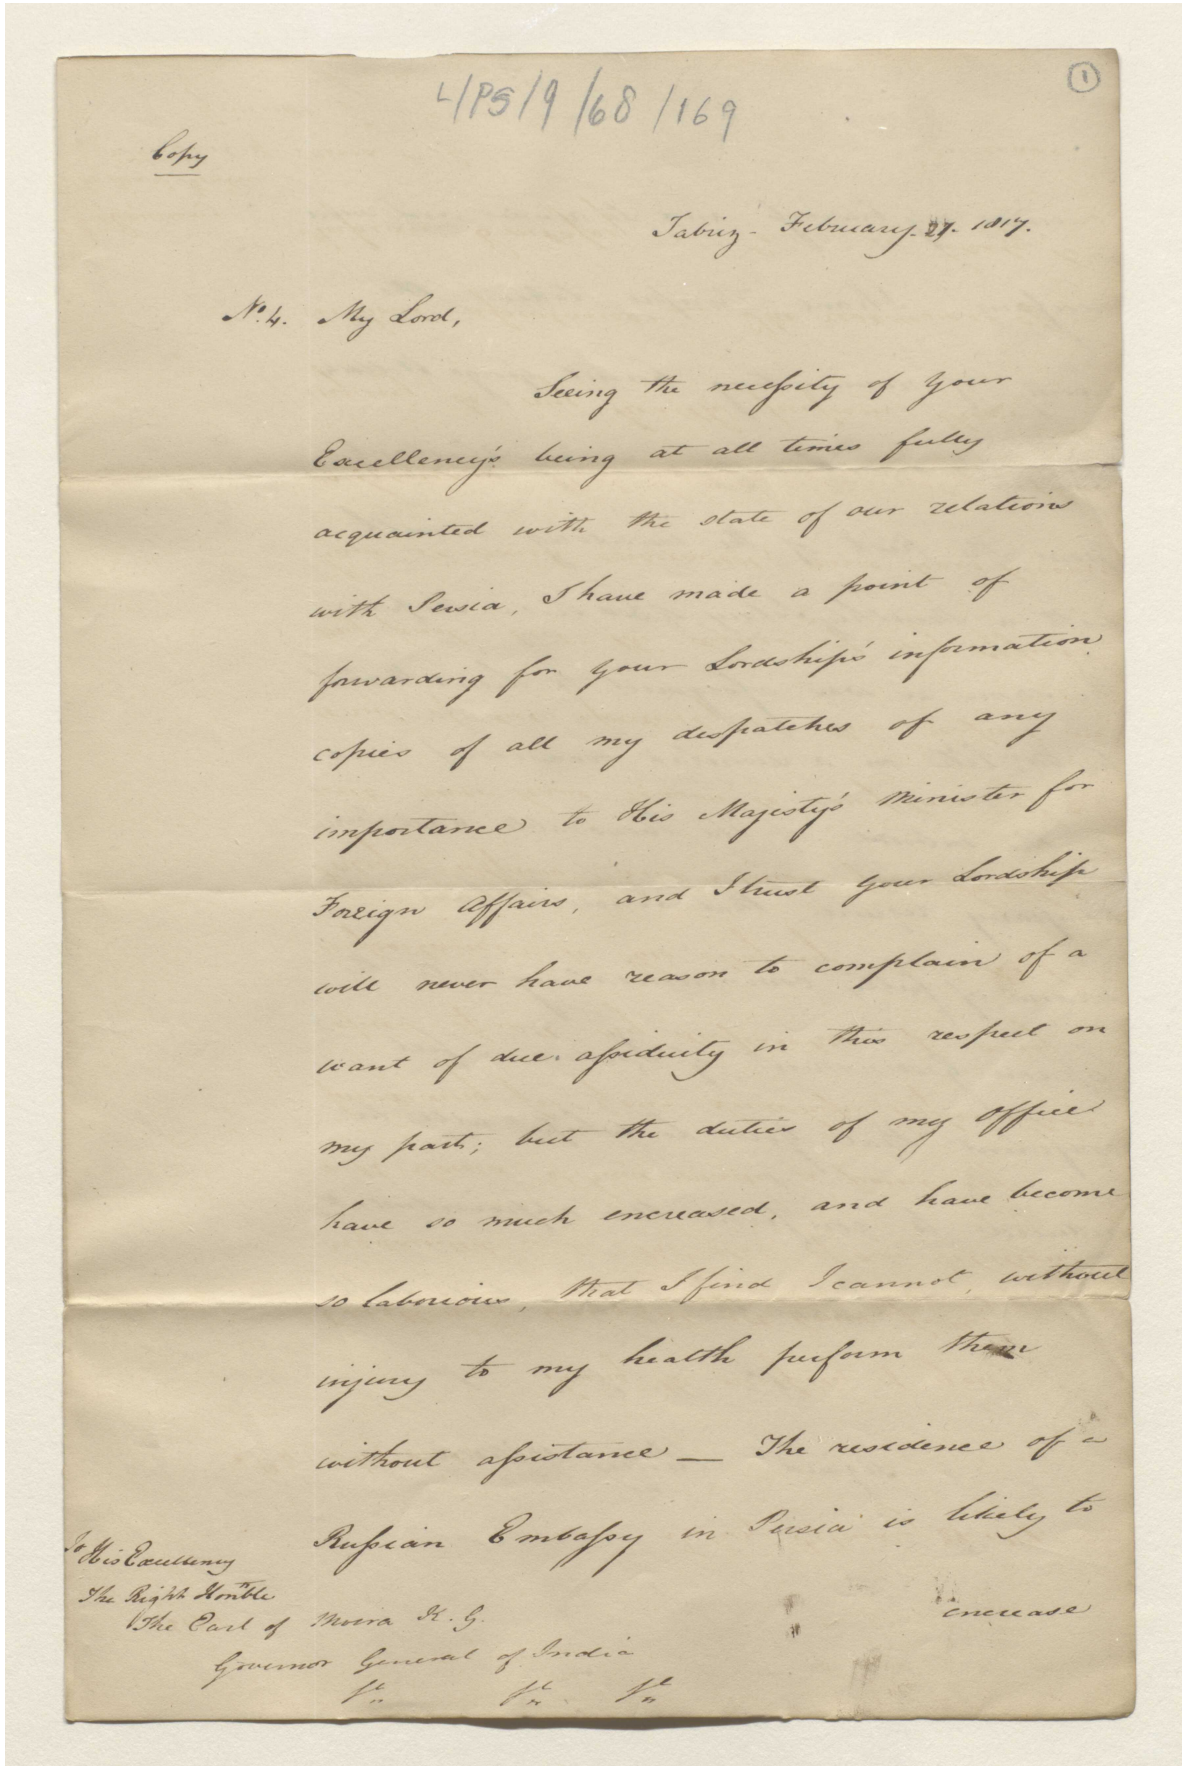 1
L/PS/9/68/169
Copy
Tabriz - February. 27. 1817.
No. 4. My Lord,
Seeing the necessity of your
Excellency's being at all times fully
acquainted with the state of our relations
with Persia, I have made a point of
forwarding for your Lordship's information
copies of all my despatches of any
importance to His Majesty's Minister for
Foreign Affairs, and I trust your Lordship
will never have reason to complain of a
want of due assiduity in this respect on
my part; but the duties of my office
have so much encreased, and have become
so laborious, that I find I cannot, without
injury to my health perform them
without assistance — The residence of a
Russian Embassy in Persia is likely to
encrease
To His Excellency
The Right Honble
The Earl of Moira K. G.
Governor General of India
&c &c &c